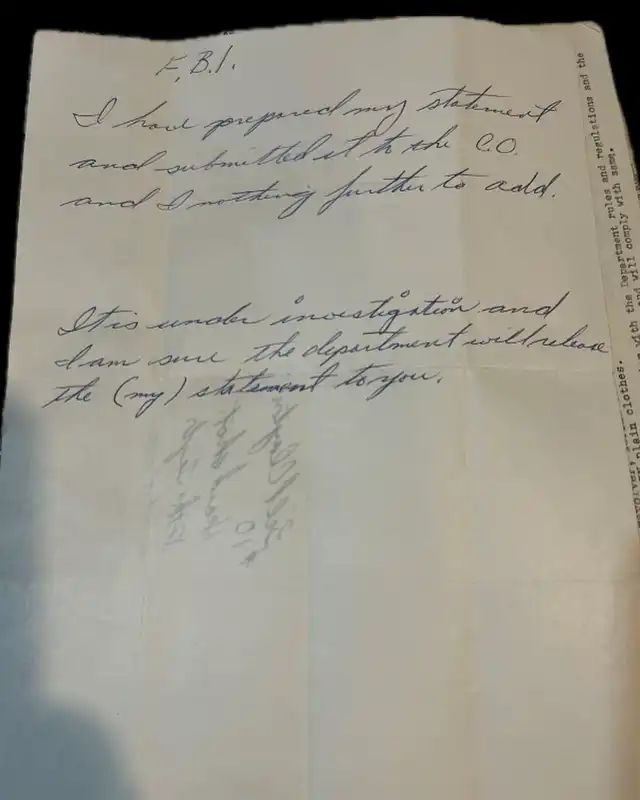 F.B.I.
I have prepared my statement
and submitted it to the C.O.
and I nothing further to add.
It is under investigation and
I am sure the department will release
the (my) statement to you.
with the Department rules and regulations and the
and will comply with same.
plain clothes.